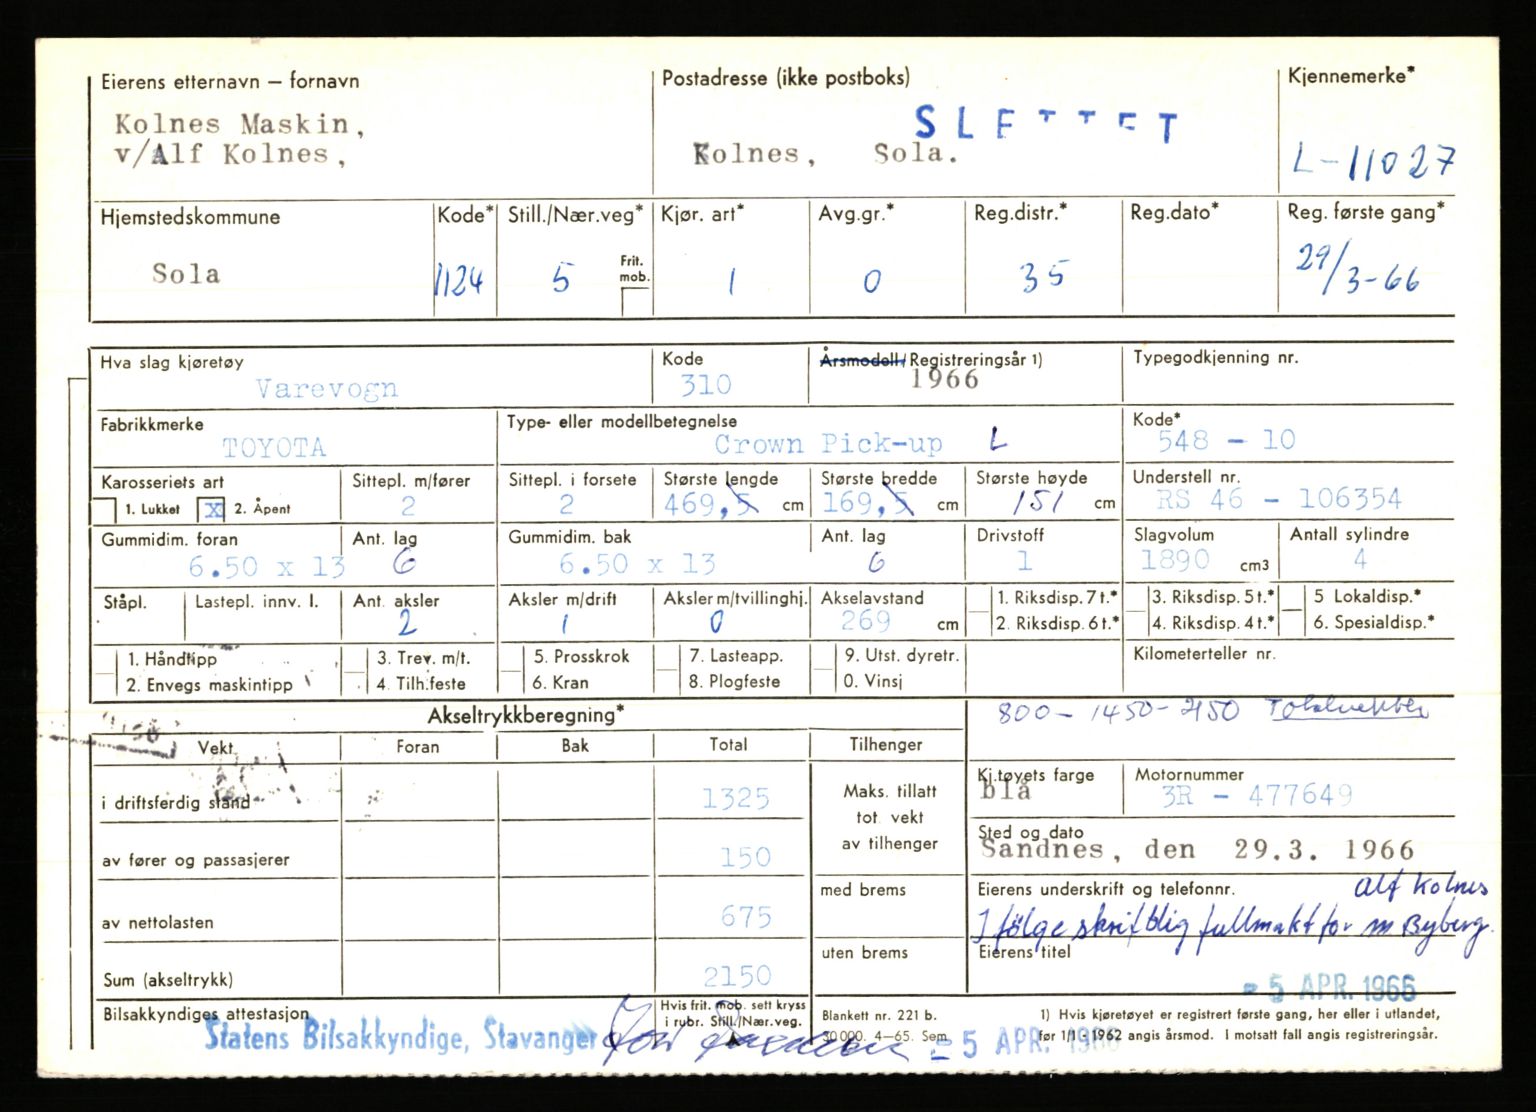 Eierens etternavn – fornavn
Kolnes Maskin,
v/Alf Kolnes,
Postadresse (ikke postboks)
SLETTET
Kolnes, Sola.
Kjennemerke*
L-11027
Hjemstedskommune
Sola
Kode*
1124
Still./Nær.veg*
5
Frit.
mob.
Kjør. art*
1
Avg.gr.*
0
Reg.distr.*
35
Reg.dato*
Reg. første gang*
29/3-66
Hva slag kjøretøy
Varevogn
Kode
310
Årsmodell/Registreringsår 1)
1966
Typegodkjenning nr.
Fabrikkmerke
TOYOTA
Type- eller modellbetegnelse
Crown Pick-up L
Kode*
548 - 10
Karosseriets art
1. Lukket X 2. Åpent
Sittepl. m/fører
2
Sittepl. i forsete
2
Største lengde
469,5 cm
Største bredde
169,5 cm
Største høyde
151 cm
Understell nr.
RS 46 - 106354
Gummidim. foran
6.50 x 13
Ant. lag
6
Gummidim. bak
6.50 x 13
Ant. lag
6
Drivstoff
1
Slagvolum
1890 cm3
Antall sylindre
4
Ståpl.
Lastepl. innv. l.
Ant. aksler
2
Aksler m/drift
1
Aksler m/tvillinghj.
0
Akselavstand
269 cm
1. Riksdisp. 7 t.*
2. Riksdisp. 6 t.*
3. Riksdisp. 5 t.*
4. Riksdisp. 4 t.*
5 Lokaldisp.*
6. Spesialdisp.*
1. Håndtipp
2. Envegs maskintipp
3. Trev. m/t.
4. Tilh.feste
5. Prosskrok
6. Kran
7. Lasteapp.
8. Plogfeste
9. Utst. dyretr.
0. Vinsj
Kilometerteller nr.
Akseltrykkberegning*
800 - 1450 - 2150
Vekt
Foran
Bak
Total
Tilhenger
i driftsferdig stand
1325
Maks. tillatt
tot. vekt
av tilhenger
Kj.tøyets farge
blå
Motornummer
3R - 477649
av fører og passasjerer
150
Sted og dato
Sandnes, den 29.3. 1966
av nettolasten
675
med brems
Eierens underskrift og telefonnr.
Alf Kolnes
I følge skriftlig fullmakt for M Byberg.
uten brems
Eierens titel
Sum (akseltrykk)
2150
- 5 APR. 1966
Bilsakkyndiges attestasjon
Statens Bilsakkyndige, Stavanger
Hvis frit. mob. sett kryss
i rubr. Still./Nær.veg.
Blankett nr. 221 b.
30 000. 4–65. Sem
- 5 APR. 1966
1) Hvis kjøretøyet er registrert første gang, her eller i utlandet,
før 1/1-1962 angis årsmod. I motsatt fall angis registreringsår.